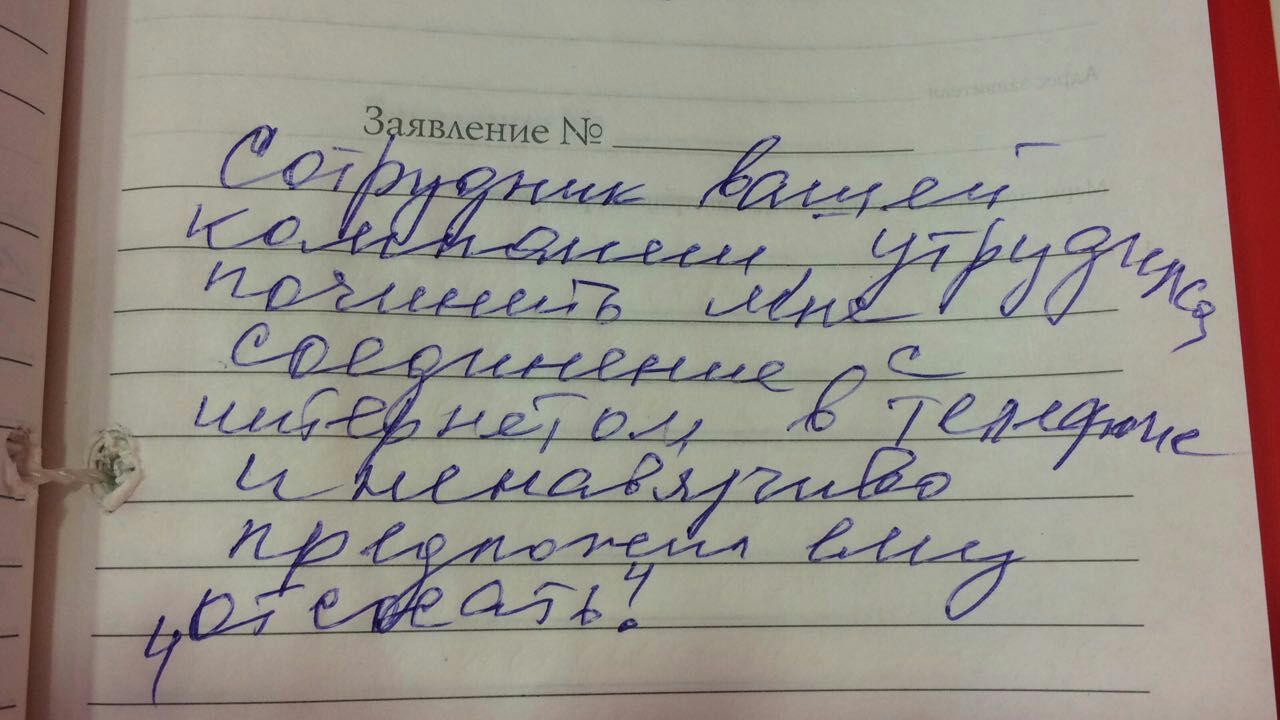 Заявление № ____________
Сотрудник вашей
компании утрудился
починить мне
соединение с
интернетом в телефоне
и ненавязчиво
предложил ему
"отсосать!"